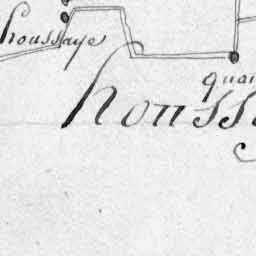 houssaye
quar
houss